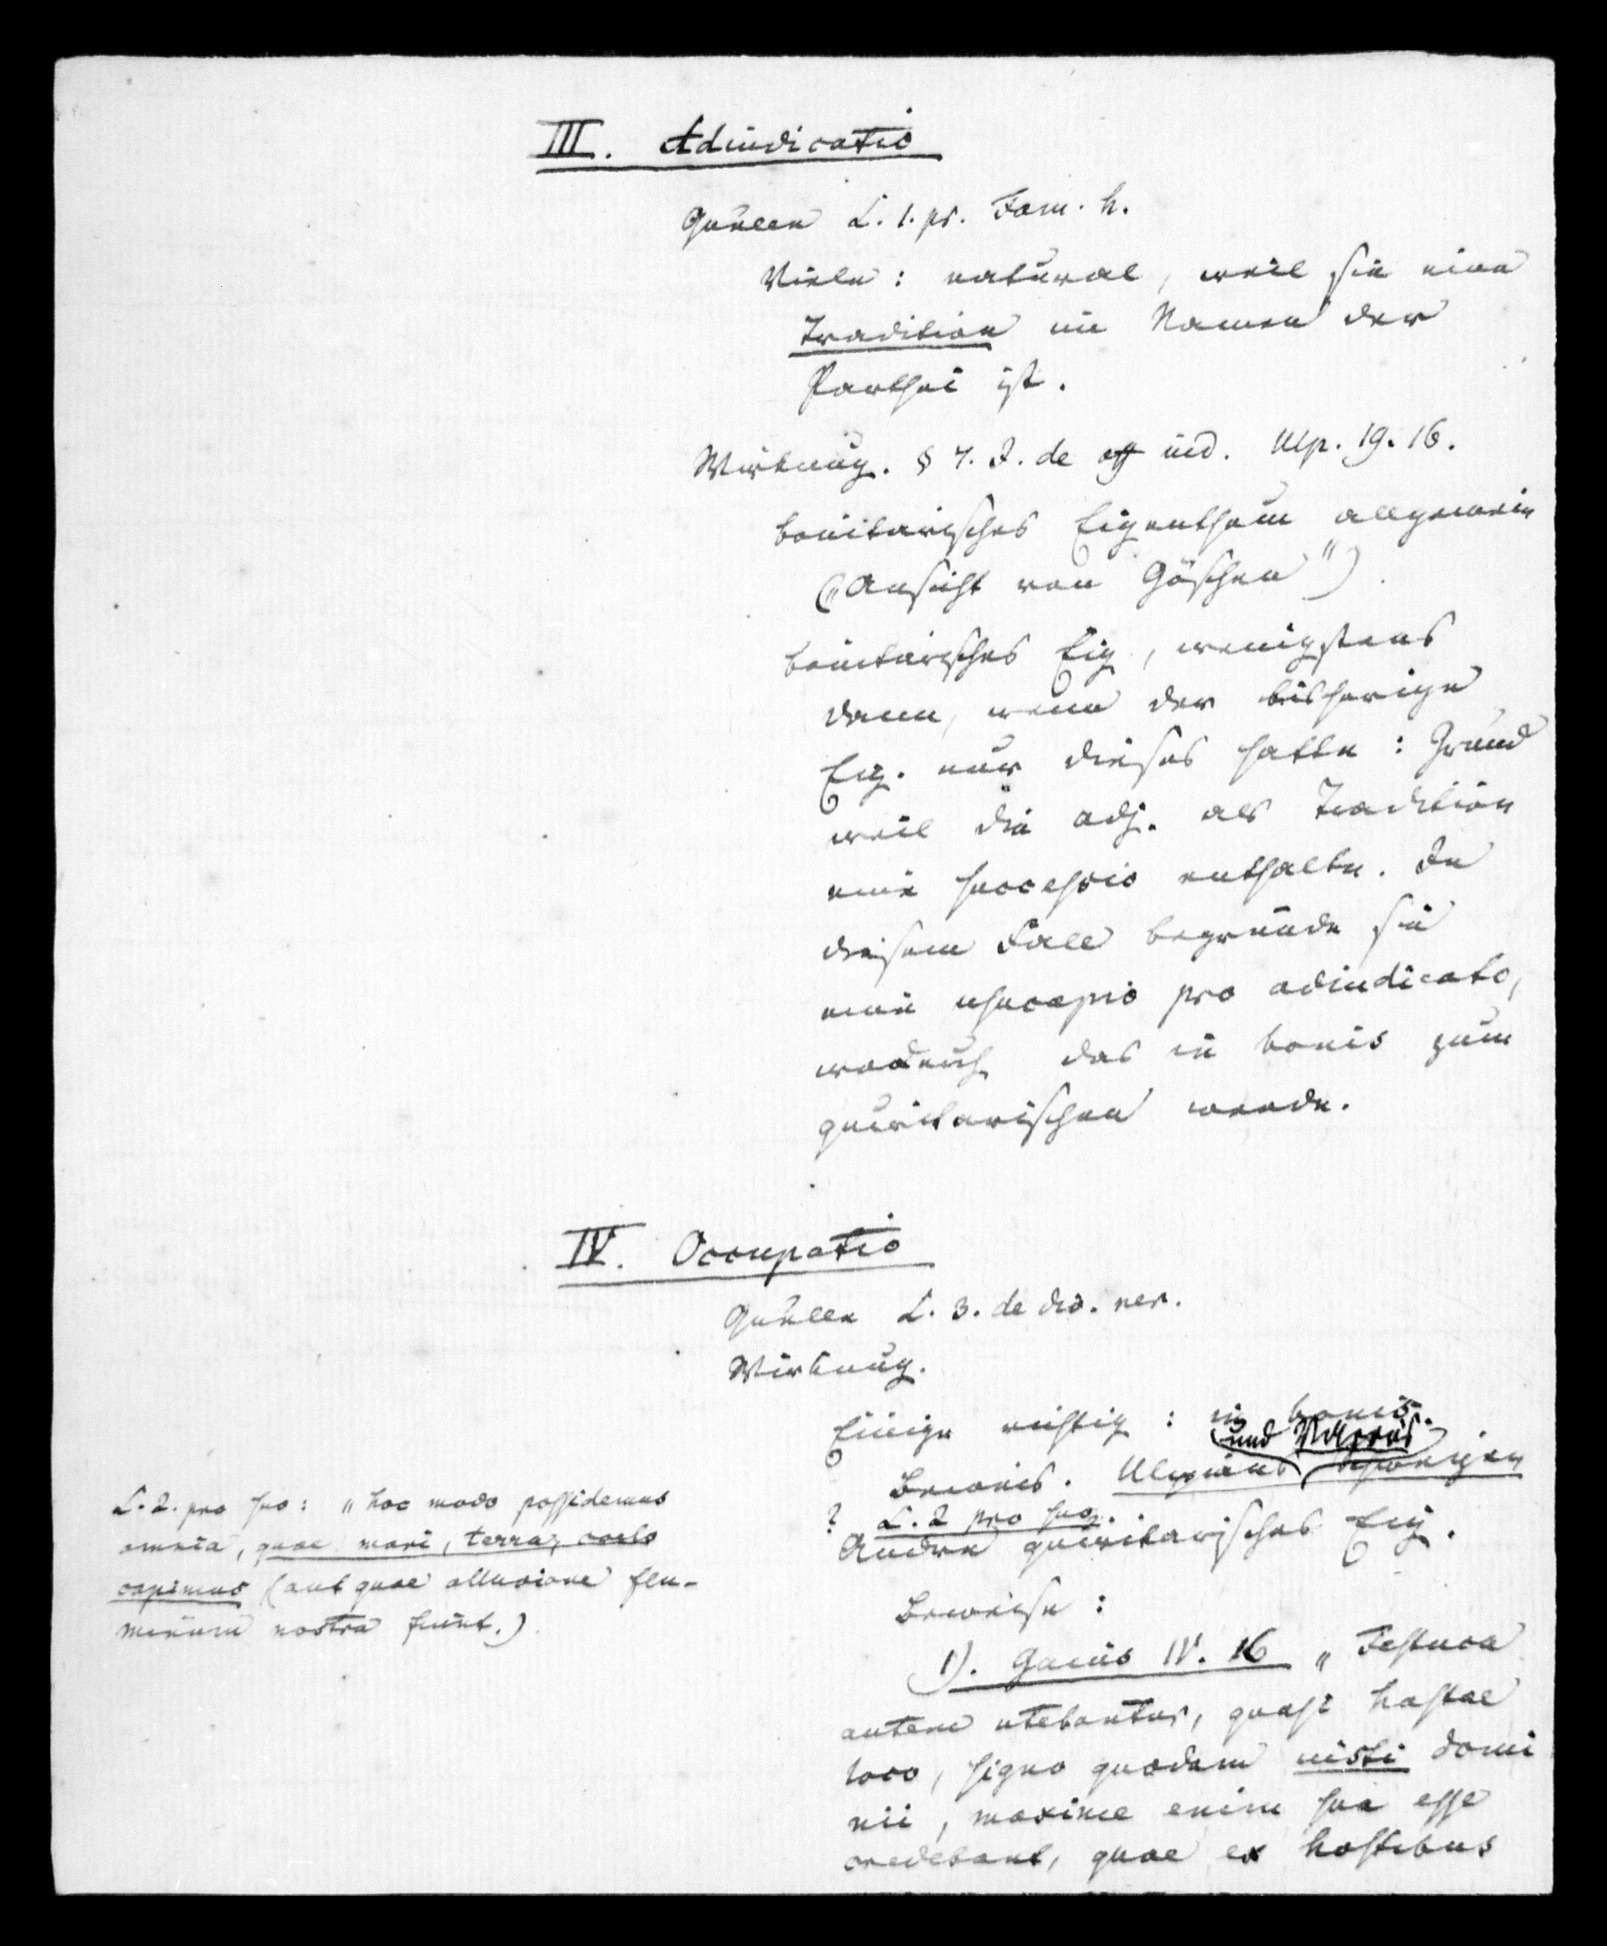 III. Adiudicatio
Quellen L. 1. pr. Fam. h.
Viele: natural, weil sie eine
Tradition im Namen der
Parthei ist.
Wirkung. § 7. I. de off iud. Ulp. 19. 16.
bonitarisches Eigenthum allgemein
(„Ansicht von Göschen")
bonitarisches Eig., wenigstens
dann, wenn der bisherige
Eig. nur dieses hatte: Grund
weil die adj. als Tradition
eine successio enthalte. In
diesem Fall begründe sie
eine usucapio pro adiudicato,
wodurch das in bonis zum
quiritarischen werde.
IV. Occupatio
Quellen L. 3. de div. rer.
Wirkung.
Einige richtig: in bonis.
und Varros
Beweis. Ulpians Schweigen
? L. 2 pro suo.
Andre quiritarisches Eig.
Beweise:
1). Gaius IV. 16 „Festuca
autem utebantur, quasi hastae
loco, signo quodam iusti domi
nii, maxime enim sua esse
credebant, quae ex hostibus
L. 2. pro suo: „hoc modo possidemus
omnia, quae mari, terra, coelo
capimus (aut quae alluvione flu-
minum nostra fiunt.)